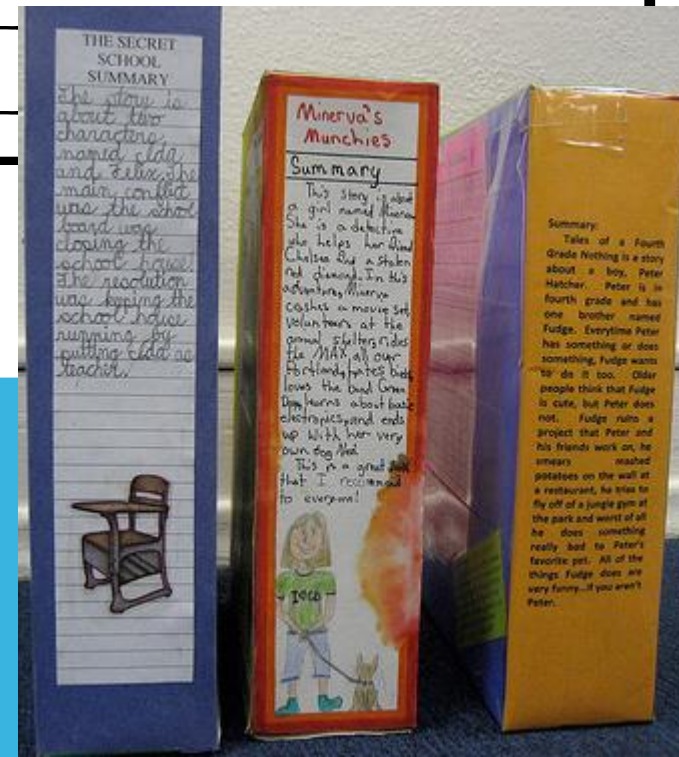 THE SECRET
SCHOOL
SUMMARY
The story is
about two
characters,
named Ida
and Felix. The
main conflict
was the school
board was
closing the
school house.
The resolution
was keping the
school house
running by
putting Ida as
teacher.
Minerva's
Munchies
Summary
This story is about
a girl named Minerva
She is a detective
who helps her friend
Chelsea find a stolen
red diamond. In this
adventure, Minerva
cashes a movie set,
volunteers at the
animal shelter, rides
the MAX all our
Portland, hates
loves the band Green
Day, learns about basic
electronics, and ends
up with her very
own dog Ned.
This is a great book
that I recommend
to everyone!
Summary:
Tales of a Fourth
Grade Nothing is a story
about a boy, Peter
Hatcher. Peter is in
fourth grade and has
one brother named
Fudge. Everytime Peter
has something or does
something, Fudge wants
to do it too. Older
people think that Fudge
is cute, but Peter does
not. Fudge ruins a
project that Peter and
his friends work on, he
smears mashed
potatoes on the wall at
a restaurant, he tries to
fly off of a jungle gym at
the park and worst of all
he does something
really bad to Peter's
favorite pet. All of the
things Fudge does are
very funny...if you aren't
Peter.